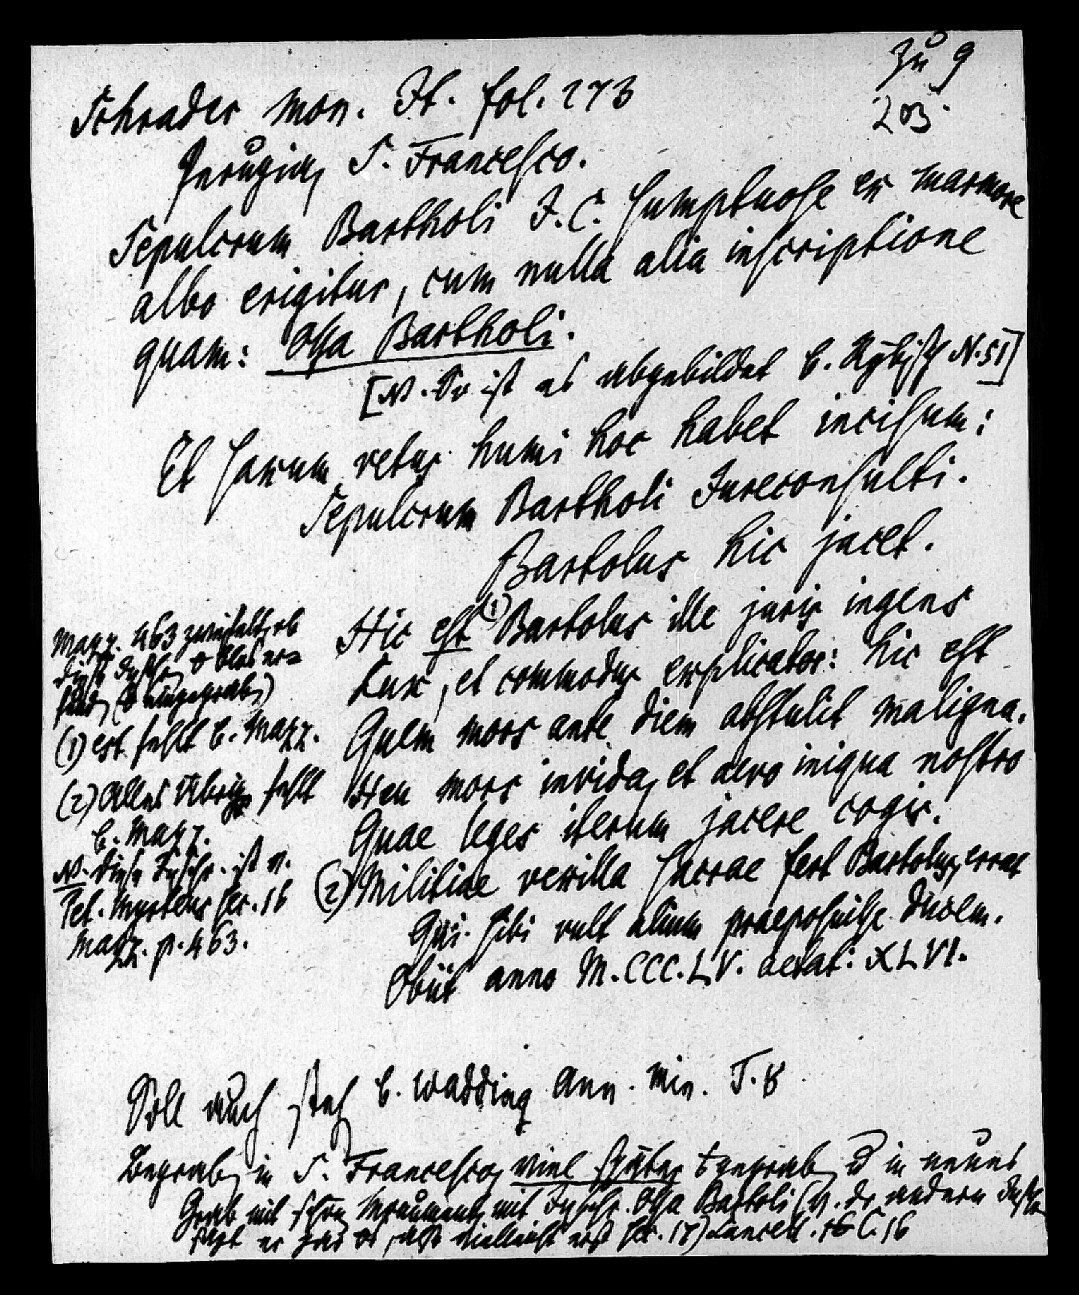 zu 9
203.
Schrader Mon. It. fol. 273
Perugia, S. Francesco.
Sepulcrum Bartholi J. C. sumptuose ex marmore
albo erigitur, cum nulla alia inscriptione
quam: Ossa Bartholi.
[N. So ist es abgebildet b. N. 51]
Et saxum vetus humi hoc habet incisum:
Sepulcrum Bartholi Jureconsulti.
Bartolus hic jacet.
Hic est (1) Bartolus ille juris ingens
Lux, et commodus explicator: hic est
Quem mors ante diem abstulit maligna.
Heu mors invida, et aevo iniqua nostro
Quae leges iterum jacere cogis.
(2) Militiae vexilla sacrae fert Bartolus, errat
Qui sibi vult alium praeposuisse ducem.
Obiit anno M.CCC.LV. aetat: XLVI.
Mazz. 463 zweifelt, ob
diese
(1) est fehlt b. Mazz.
(2) Alles Übrige fehlt
b. Mazz.
N. diese Inschr. ist v.
Pet. ser. 16
Mazz. p. 463.
Soll auch steh b. Wadding Ann. Min. T. 8
Begrab, in S. Francesco, viel später in neues
Grab mit Inschr. Ossa Bartoli (v. der andern
vielleicht erst 16